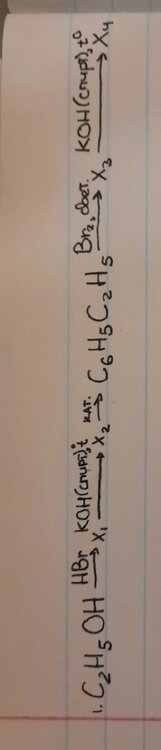 1. C₂H₅OH —HBr→ X₁ —KOH(спирт), t°→ X₂ —кат.→ C₆H₅C₂H₅ —Br₂, свет.→ X₃ —KOH(спирт), t°→ X₄